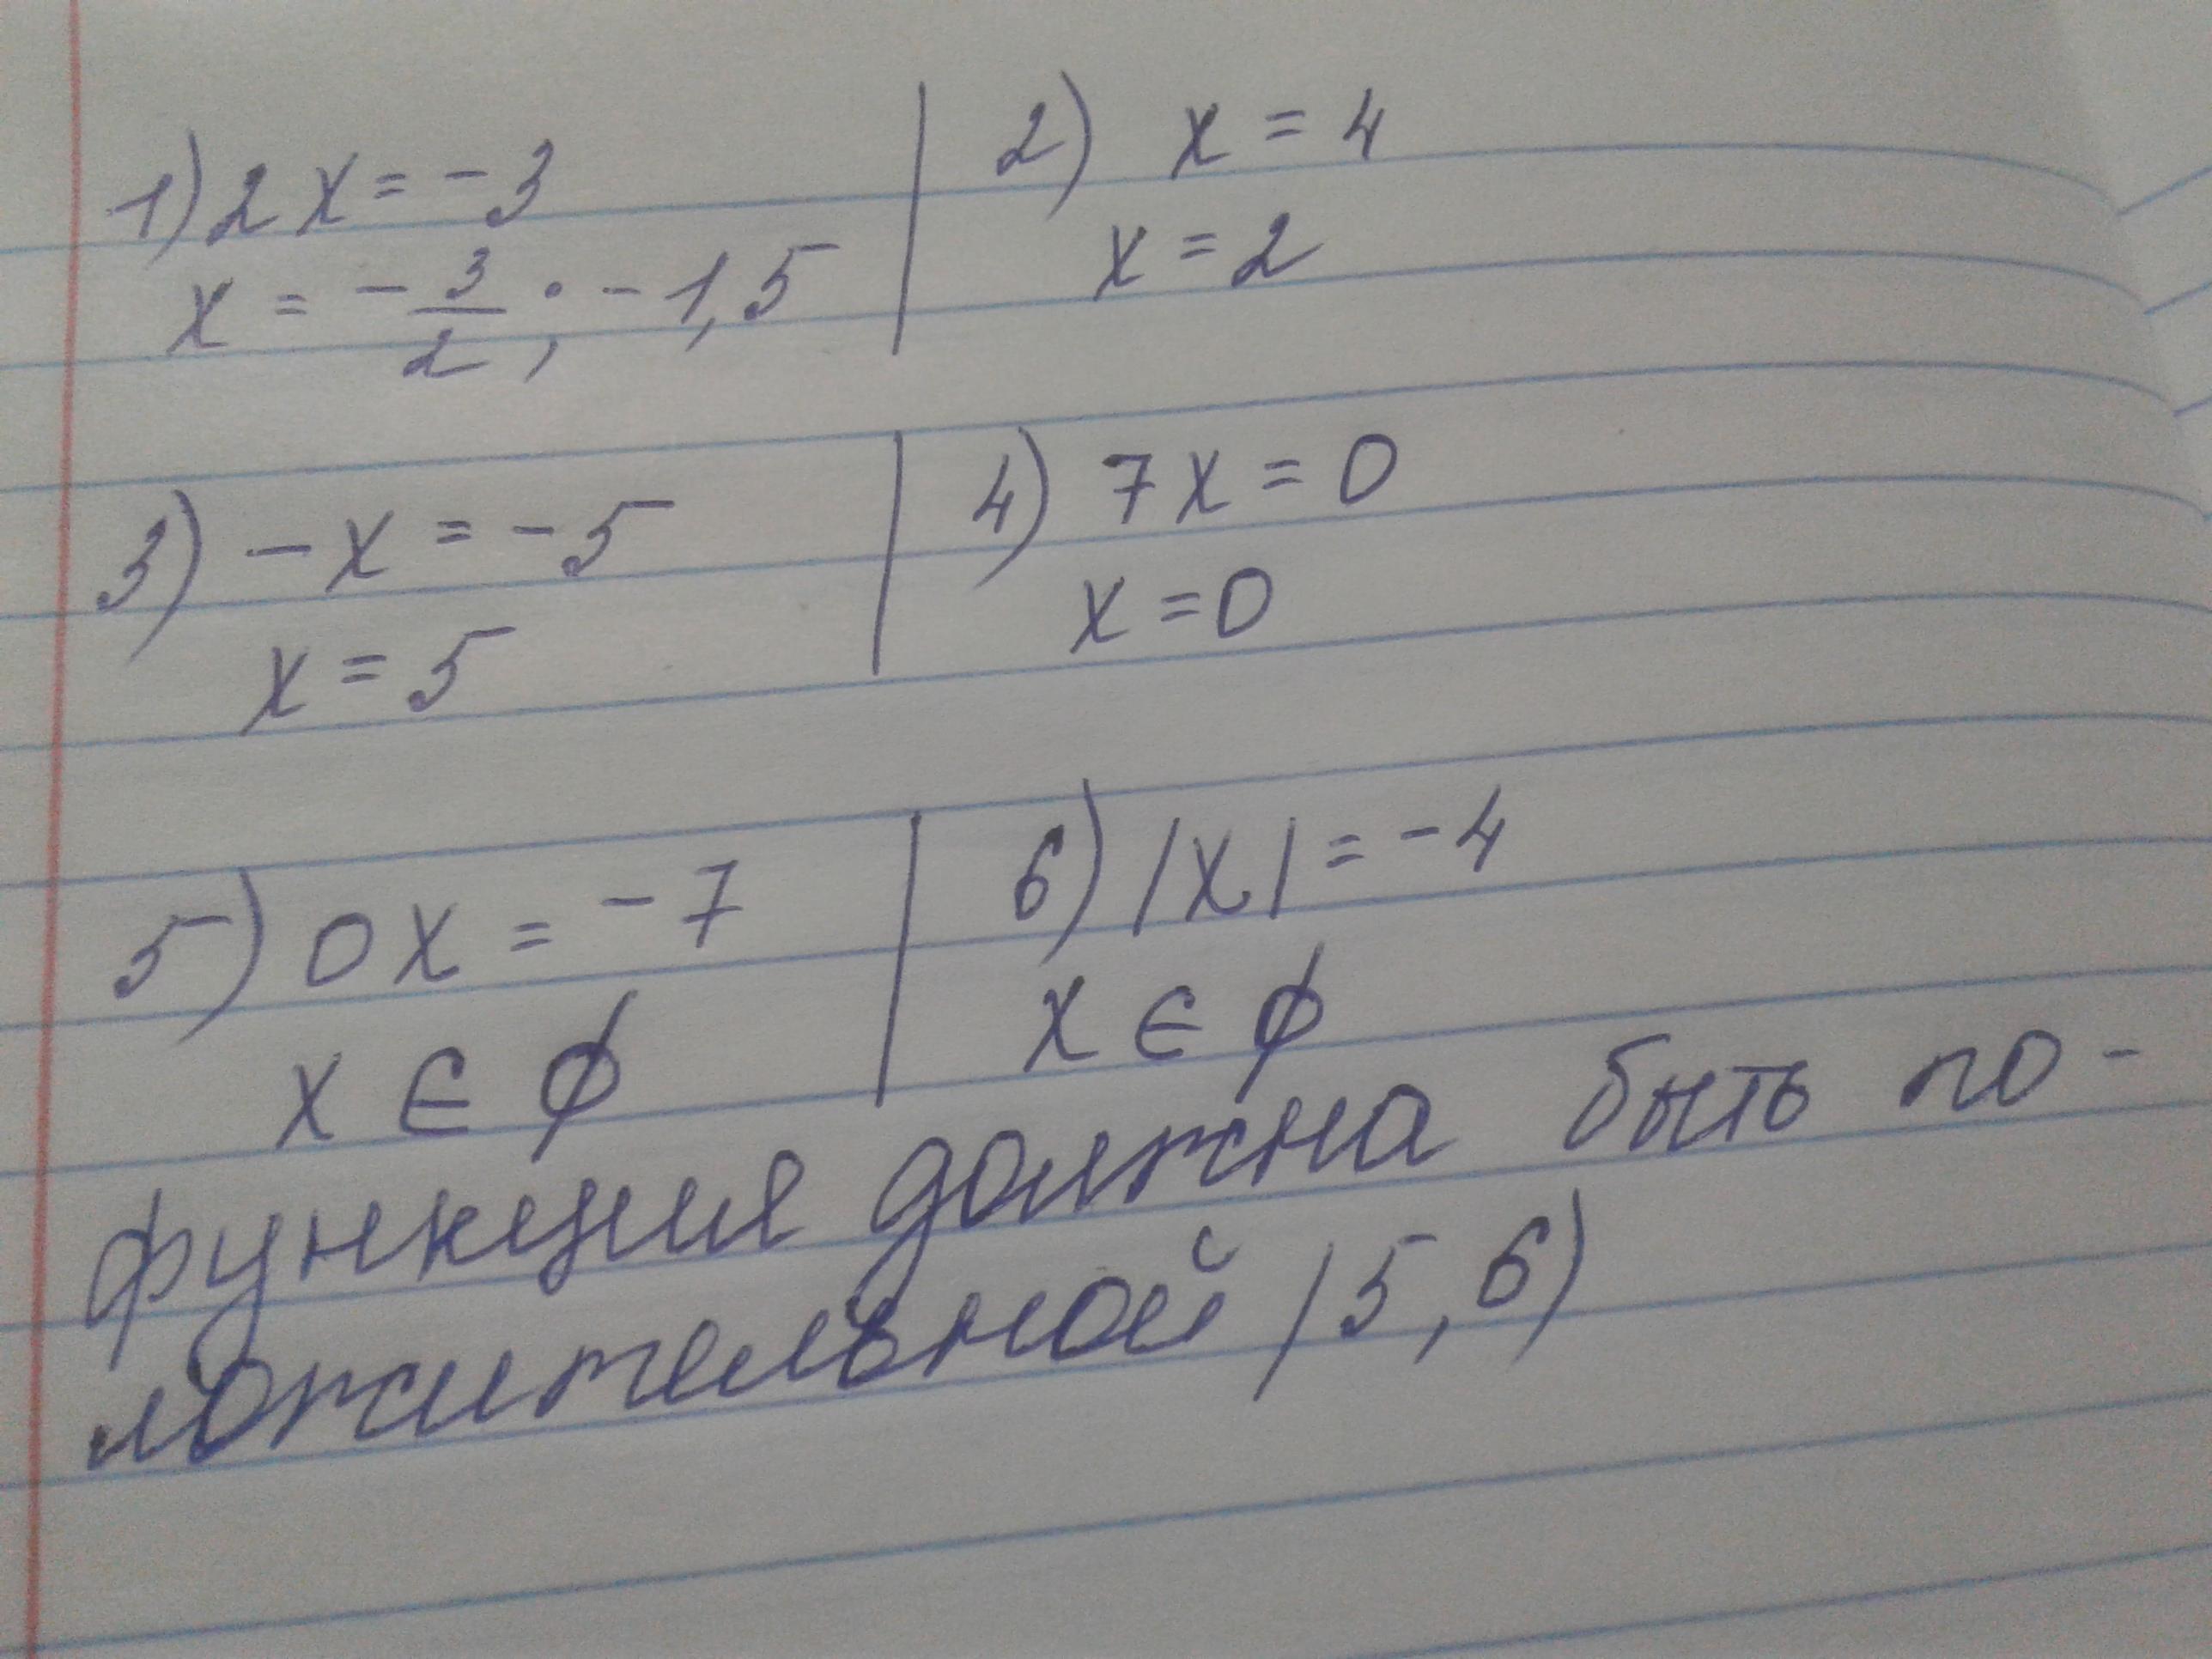 1) 2x = -3
x = -3/2; -1,5
2) x = 4
x = 2
3) -x = -5
x = 5
4) 7x = 0
x = 0
5) 0x = -7
x ∈ ∅
6) |x| = -4
x ∈ ∅
функция должна быть по-
ложительной (5, 6)